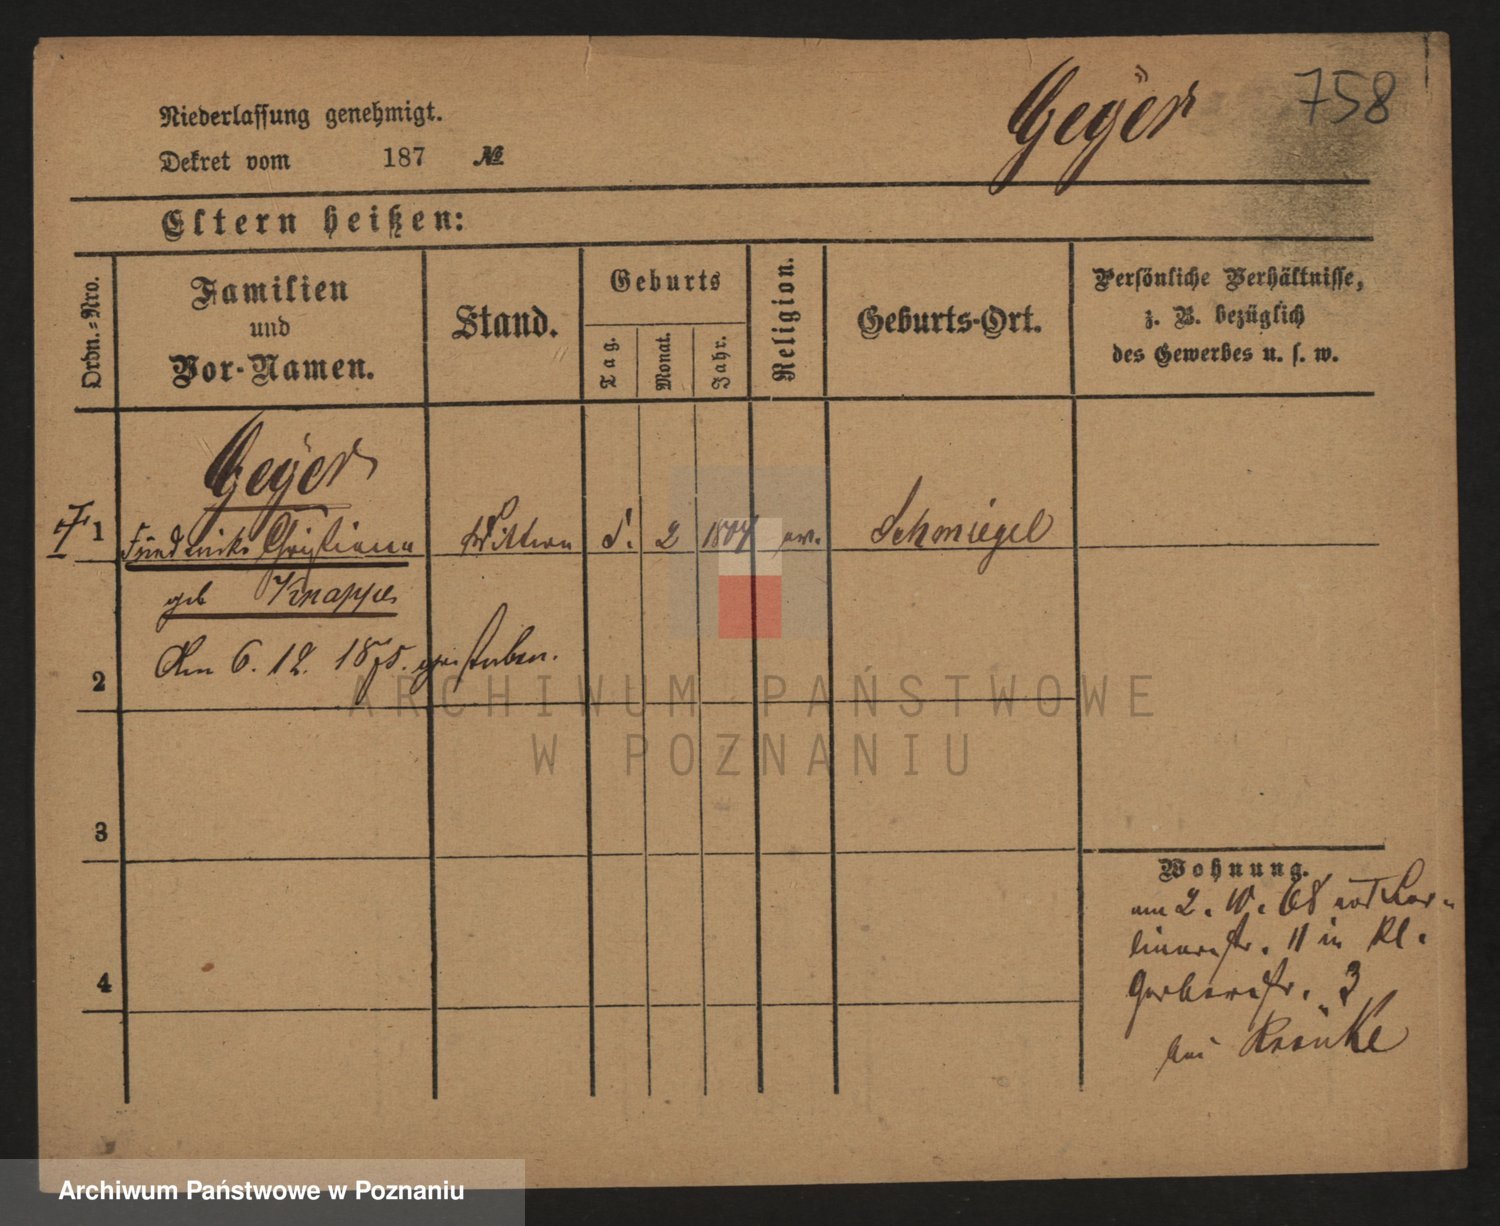 Geyer
758
Niederlassung genehmigt.
Dekret vom 187 №
Eltern heißen:
Ordn.-Nro.
Familien
und
Vor-Namen.
Stand.
Geburts
Tag.
Monat.
Jahr.
Religion.
Geburts-Ort.
Persönliche Verhältnisse,
z. B. bezüglich
des Gewerbes u. s. w.
Geyer
1 Friedericke Christiana Wittwe 2 1807 ev. Schmiegel
geb Knappe
Am 6. 12. 1875. gestorben.
2
3
4
Wohnung.
am 2. 10. 68 von
11 in Kl.
Gerberstr. 3
bei
ARCHIWUM PAŃSTWOWE
W POZNANIU
Archiwum Państwowe w Poznaniu